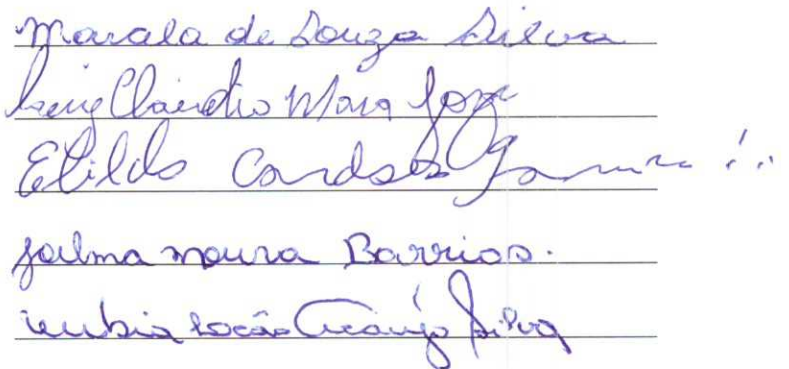 Marcela de Souza Silva
Luiz Claudio Mora
Elildo Cardoso
Jalma moura Barrios.
rubia Araújo Silva